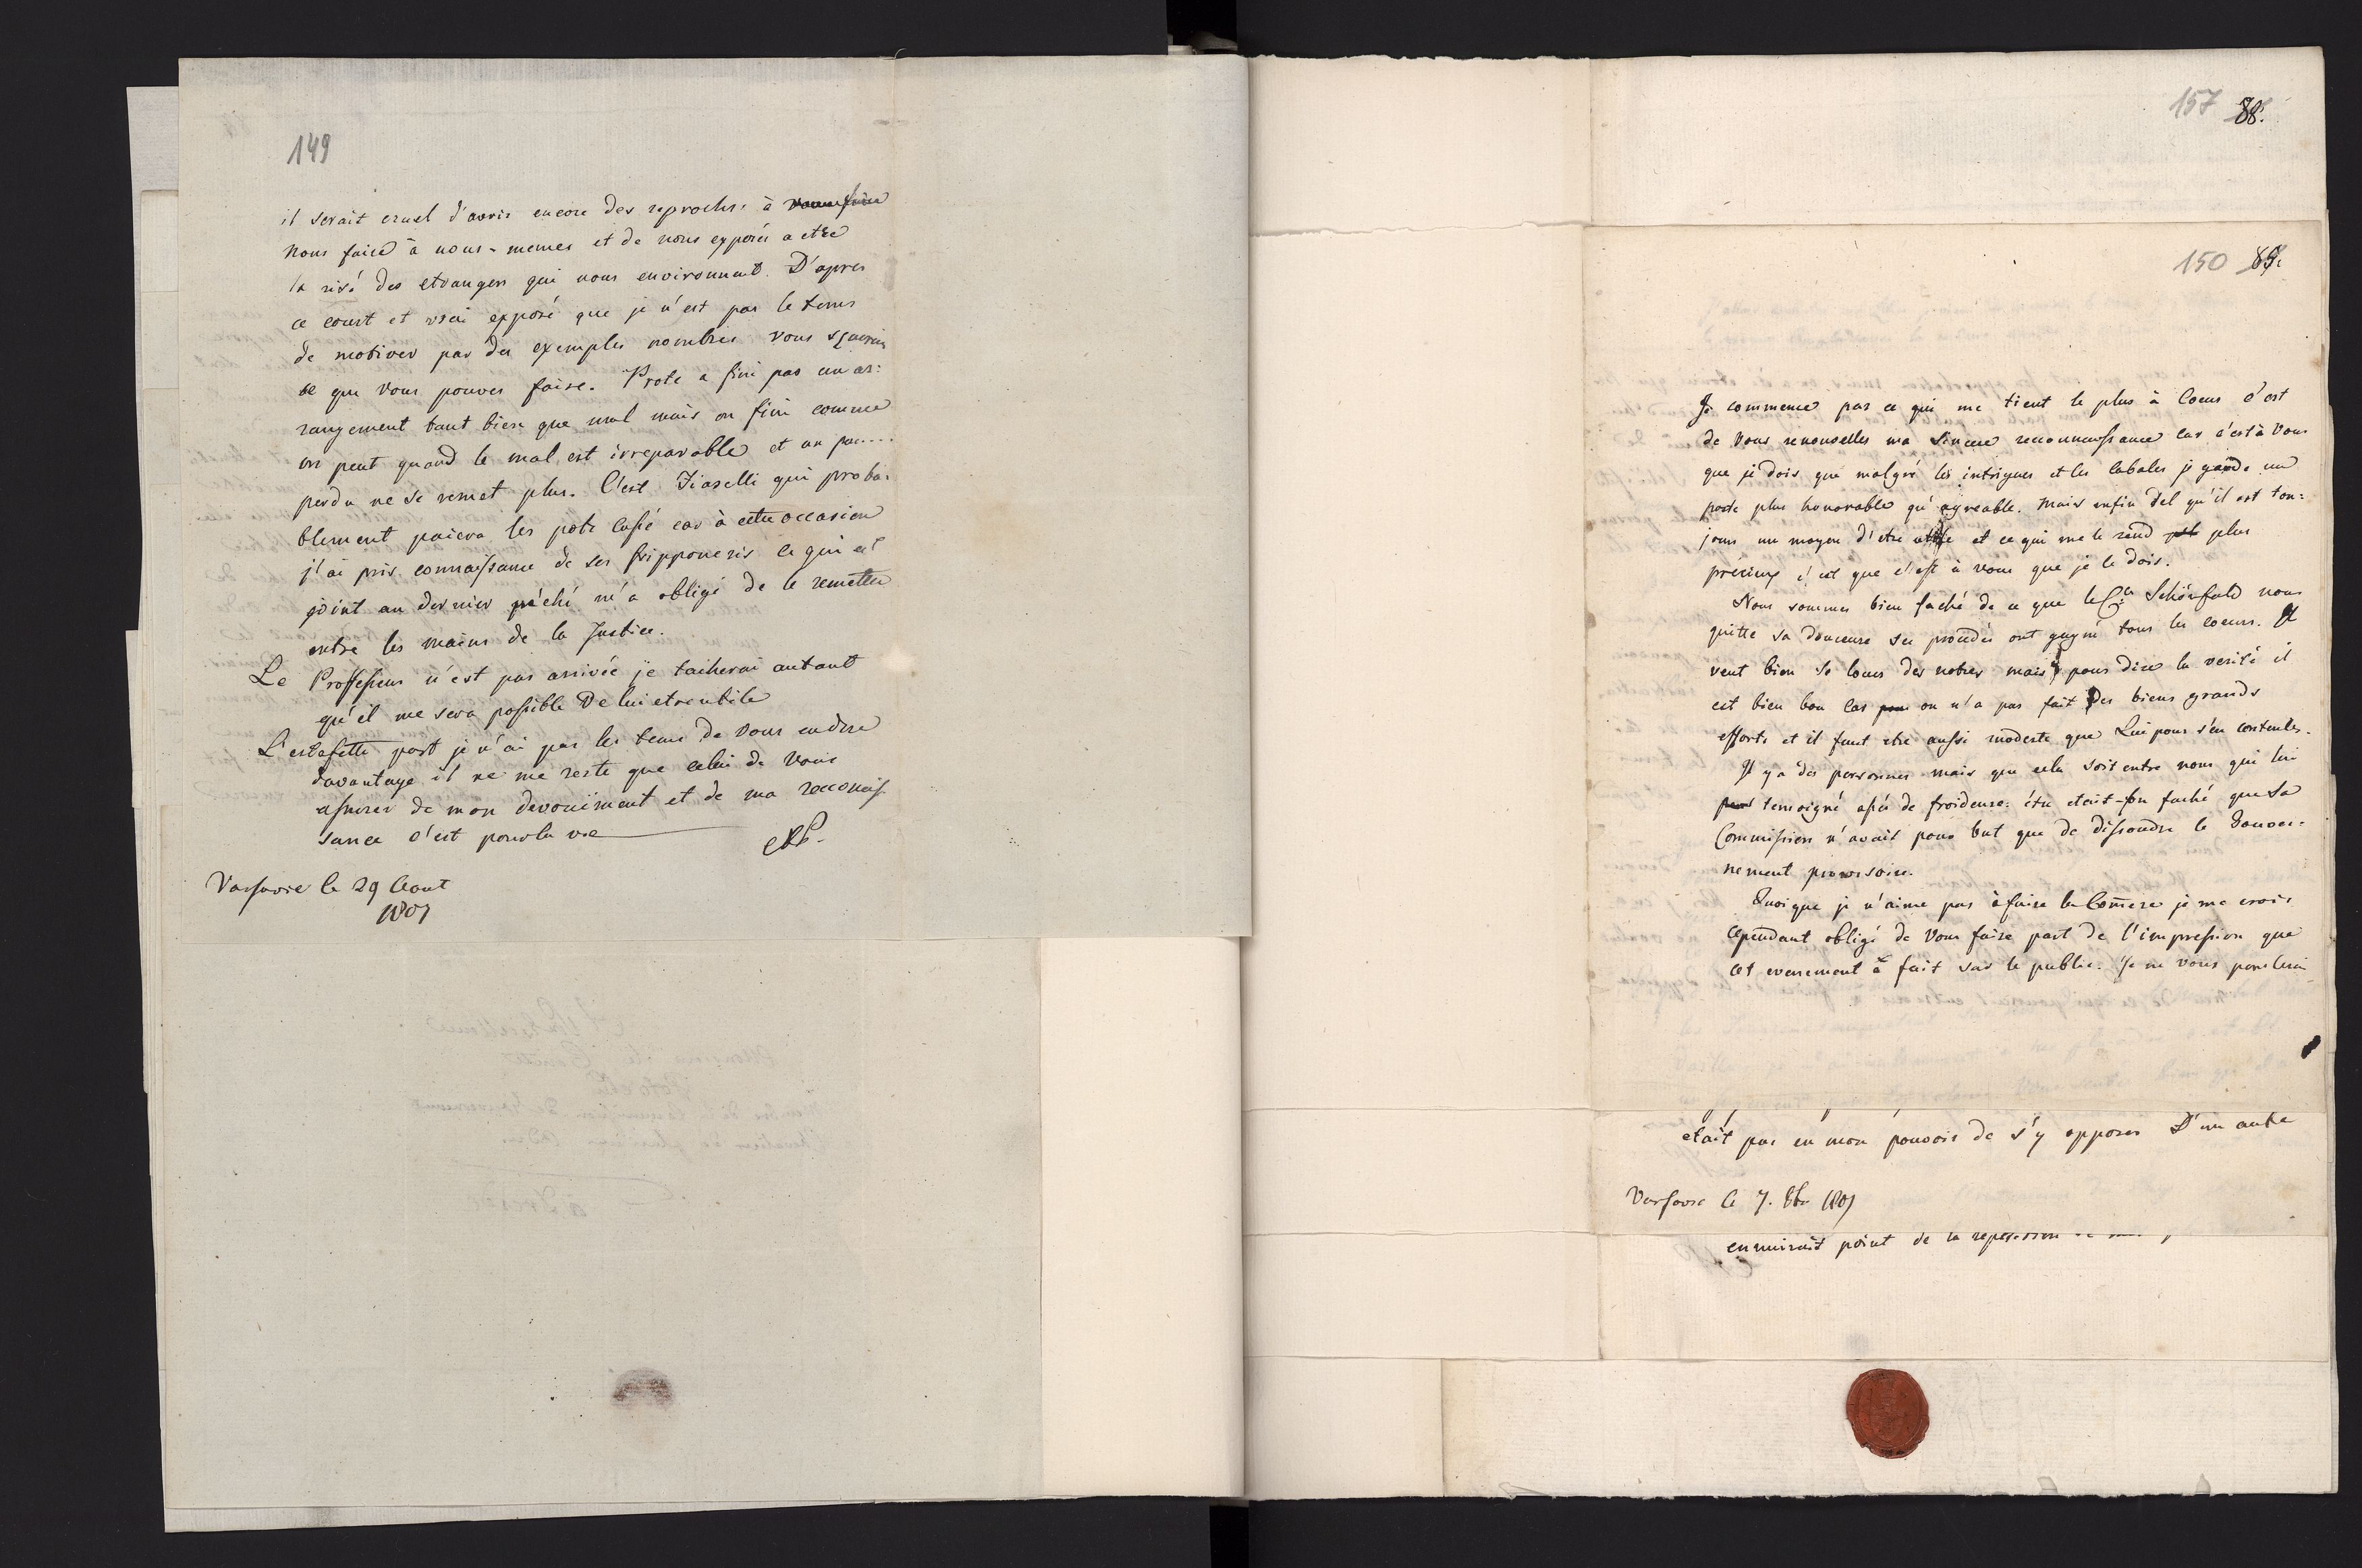 149
il serait cruel d'avoir encore des reproches à
nous faire à nous-memes et de nous exposer a etre
la risé des etrangers qui nous environnent. D'apres
ce court et vrai epposé que je n'est pas le tems
de motiver par des exemples nombrés vous sçaurez
ce que vous pouves faire. Prote a fini par un ar:
rangement tant bien que mal mais on fini comme
on peut quand le mal est irreparable et un pu....
perdu ne se remet plus. C'est Fiaselli qui proba:
blement paiera les pots cassé car à cette occasion
j'ai pris connaissance de ses fripponeris ce qui est
joint au dernier péché m'a obligé de le remettre
entre les mains de la Justice.
Le Proffesseur n'est pas arrivée je tacherai autant
qu'il me sera possible De lui etre utile
L'estafette part je n'ai pas le tems de vous endire
davantage il ne me reste que celui de vous
assurer de mon devouëment et de ma reconais
sance c'est pour la vie
Varsovie le 29 Aout
1807
157 88.
150 89.
Je commence par ce qui me tient le plus à coeur c'est
de vous renouveller ma sincere reconnaissance car c'est à vous
que je dois que malgré les intrigues et les cabales je garde un
poste plus honorable qu'agreable. Mais enfin tel qu'il est tou=
jours un moyen d'etre utile et ce qui me le rend plus
précieux c'est que c'est à vous que je le dois.
Nous sommes bien faché de ce que le Cte Schönfeld nous
quitte sa douceure ses procedés ont gagné tous les coeurs. Il
veut bien se louer des notres mais pour dire la verité il
est bien bon car on n'a pas fait des biens grands
efforts et il faut etre aussi modeste que Lui pour s'en contenter.
Il y a des personnes mais que cela soit entre nous qui lui
temoigné assés de froideure: était-on faché que sa
Commission n'avait pour but que de dissoudre le Gouver=
nement provisoire.
Quoique je n'aime pas à faire la Comere je me crois
cependant obligé de vous faire part de l'impression que
cet evenement à fait sur le public. Je ne vous parlerai
etait pas en mon pouvoir de s'y opposer D'un autre
Varsovie le 7. 8br 1807
ennuirait point de la repetition